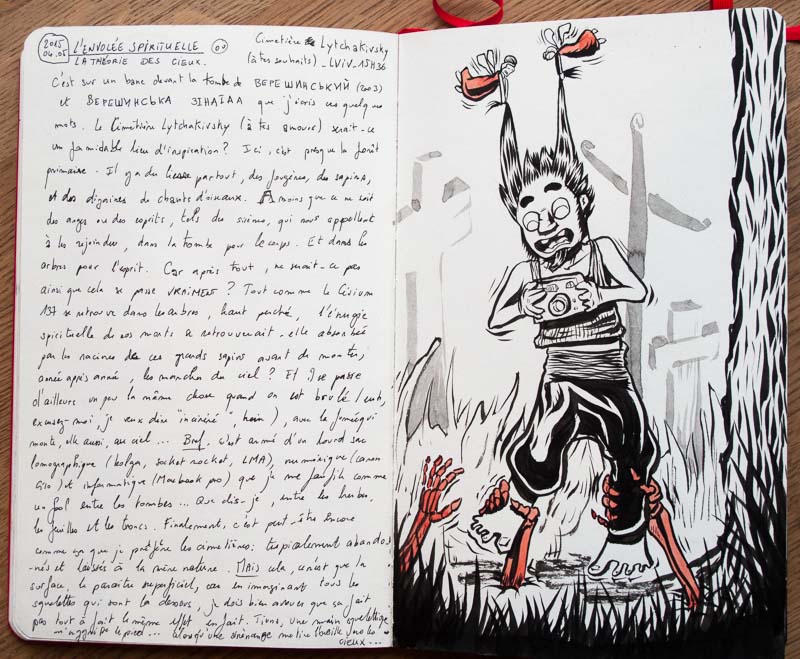 2015 04.05 L'ENVOLÉE SPIRITUELLE
LA THÉORIE DES CIEUX.
Cimetière Lytchakivsky
(à tes souhaits) _ LViv _ 15H36
C'est sur un banc devant la tombe de ВЕРЕШИНСЬКИЙ (2003)
et ВЕРЕШИНСЬКА ЗІНАЇДА que j'écris ces quelques
mots. Le Cimetière Lytchakivsky (à tes amours) serait-ce
un formidable lieu d'inspiration ? Ici, c'est presque la forêt
primaire. Il y a du lierre partout, des fougères, des sapins,
et des dizaines de chants d'oiseaux. A moins que ce ne soit
des anges ou des esprits, tels des sirènes, qui nous appellent
à les rejoindre, dans la tombe pour le corps. Et dans les
arbres pour l'esprit. Car après tout, ne serait-ce pas
ainsi que cela se passe VRAIMENT ? Tout comme le
137 se retrouve dans les arbres, haut perché, l'énergie
spirituelle de nos morts se retrouverait-elle absorbée
par les racines de ces grands sapins avant de monter,
année après année, les marches du ciel ? Et il se passe
d'ailleurs un peu la même chose quand on est brûlé
excusez-moi je veux dire "incinéré", hein), avec la fumée qui
monte, elle aussi, au ciel... Bref. c'est armé d'un lourd sac
lomographique (holga, socket rocket, LMA), numérique (canon
) et informatique (Macbook pro) que je me faufile comme
un fol entre les tombes... Que dis-je, entre les herbes,
les feuilles et les troncs. Finalement, c'est peut-être encore
comme ça que je préfère les cimetières: tropicalement abandon
-nés et laissés à la mère nature. MAis cela, ce n'est que la
surface, le paraître superficiel, car en imaginant tous les
squelettes qui sont là dessous, je dois bien avouer que ça fait
pas tout à fait le même effet en fait. Tiens, une main squelettique
m'agrippe le pied... alors qu'une me tire vers les
cieux...